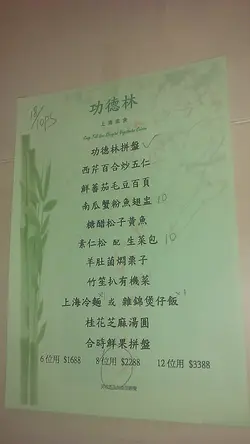 功德林
上海素食
功德林拼盤
西芹百合炒五仁
鮮蕃茄毛豆百頁
南瓜蟹粉魚翅盅 10
糖醋松子黃魚
素仁松 配 生菜包 10
羊肚菌燜栗子
竹笙扒有機菜
上海冷麵 或 雜錦煲仔飯
桂花芝麻湯圓
合時鮮果拼盤
6 位用 $1688 8 位用 $2288 12 位用 $3388